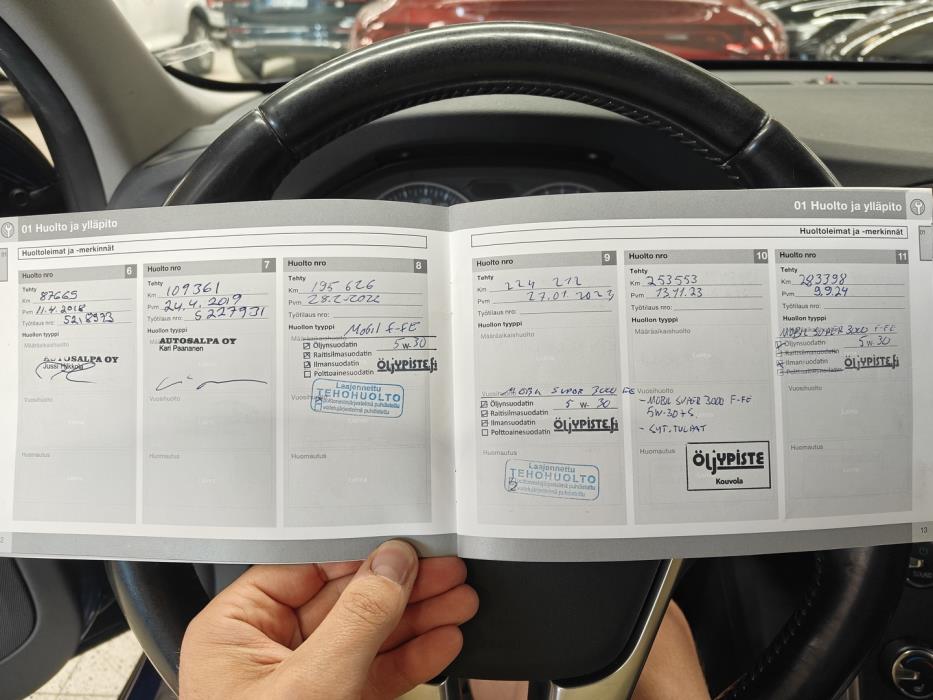 01 Huolto ja ylläpito
Huoltoleimat ja -merkinnät
Huolto nro 6
Tehty
Km 87665
Pvm 11.4.2018
Työtilaus nro:
Huollon tyyppi
AUTOSALPA OY
Vuosihuolto
Huomautus
Huolto nro 7
Tehty
Km 109361
Pvm 24.4.2019
Työtilaus nro: 5227931
Huollon tyyppi
AUTOSALPA OY
Kari Paananen
Vuosihuolto
Huomautus
Huolto nro 8
Tehty
Km 195 626
Pvm 28.2-2022
Työtilaus nro:
Huollon tyyppi
Mobil F-FE
Määräaikaishuolto
Öljynsuodatin 5w-30
Raitisilmasuodatin
Ilmansuodatin
Polttoainesuodatin
ÖLJYPISTE.fi
Laajennettu
TEHOHUOLTO
Huomautus
01 Huolto ja ylläpito
Huoltoleimat ja -merkinnät
Huolto nro 9
Tehty
Km 224 212
Pvm 27.01.2023
Työtilaus nro:
Huollon tyyppi
Määräaikaishuolto
MOBIL SUPER 3000 FE
Öljynsuodatin 5 w- 30
Raitisilmasuodatin
Ilmansuodatin
Polttoainesuodatin
ÖLJYPISTE.fi
Huomautus
Laajennettu
TEHOHUOLTO
Huolto nro 10
Tehty
Km 253553
Pvm 13.11.23
Työtilaus nro:
Huollon tyyppi
Määräaikaishuolto
Vuosihuolto
- MOBIL SUPER 3000 F-FE
5W-30 + S.
- SYT. TULPAT
Huomautus
ÖLJYPISTE
Kouvola
Huolto nro 11
Tehty
Km 283398
Pvm 9.9.24
Työtilaus nro:
Huollon tyyppi
MOBIL SUPER 3000 F-FE
Öljynsuodatin 5w-30
Raitisilmasuodatin
Ilmansuodatin
Polttoainesuodatin
ÖLJYPISTE.fi
Vuosihuolto
Huomautus
13
SOUND